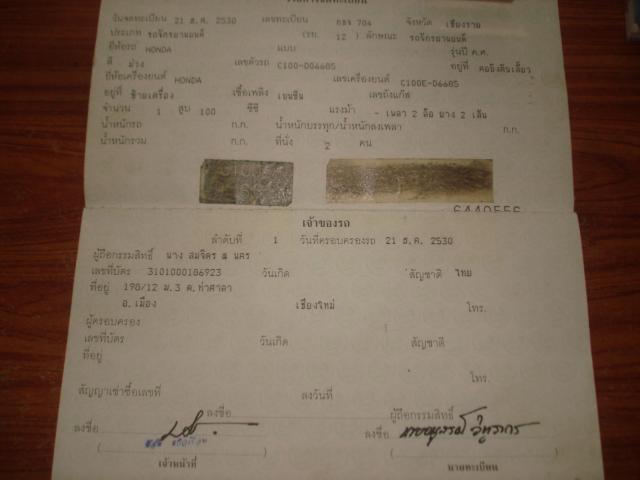 วันจดทะเบียน 21 ธ.ค. 2530 เลขทะเบียน 704 จังหวัด เชียงราย
ประเภท รถจักรยานยนต์ (รย. 12 ) ลักษณะ รถจักรยานยนต์
ยี่ห้อรถ HONDA แบบ รุ่นปี ค.ศ.
สี ม่วง เลขตัวรถ C100-006685 อยู่ที่ คอถังคันเลี้ยว
ยี่ห้อเครื่องยนต์ HONDA เลขเครื่องยนต์ C100E-06685
อยู่ที่ ซ้ายเครื่อง เชื้อเพลิง เบนซิน เลขถังแก๊ส
จำนวน 1 สูบ 100 ซีซี แรงม้า - เพลา 2 ล้อ ยาง 2 เส้น
น้ำหนักรถ ก.ก. น้ำหนักบรรทุก/น้ำหนักลงเพลา ก.ก.
น้ำหนักรวม ก.ก. ที่นั่ง 2 คน
เจ้าของรถ
ลำดับที่ 1 วันที่ครอบครองรถ 21 ธ.ค. 2530
ผู้ถือกรรมสิทธิ์ นาง สมจิตร
เลขที่บัตร 3101000186923 วันเกิด สัญชาติ ไทย
ที่อยู่ 198/12 ม.3 ต.ท่าศาลา
อ.เมือง เชียงใหม่ โทร.
ผู้ครอบครอง
เลขที่บัตร วันเกิด สัญชาติ
ที่อยู่
โทร.
สัญญาเช่าซื้อเลขที่ ลงวันที่
ลงชื่อ ผู้ถือกรรมสิทธิ์
ลงชื่อ ลงชื่อ
เจ้าหน้าที่ นายทะเบียน